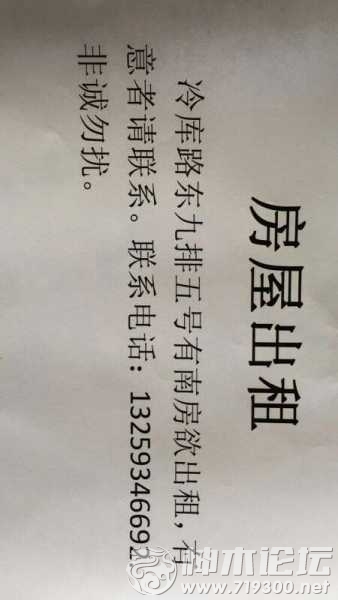 房屋出租
冷库路东九排五号有南房欲出租，有
意者请联系。联系电话：13259346692
非诚勿扰。
神木论坛
www.719300.net